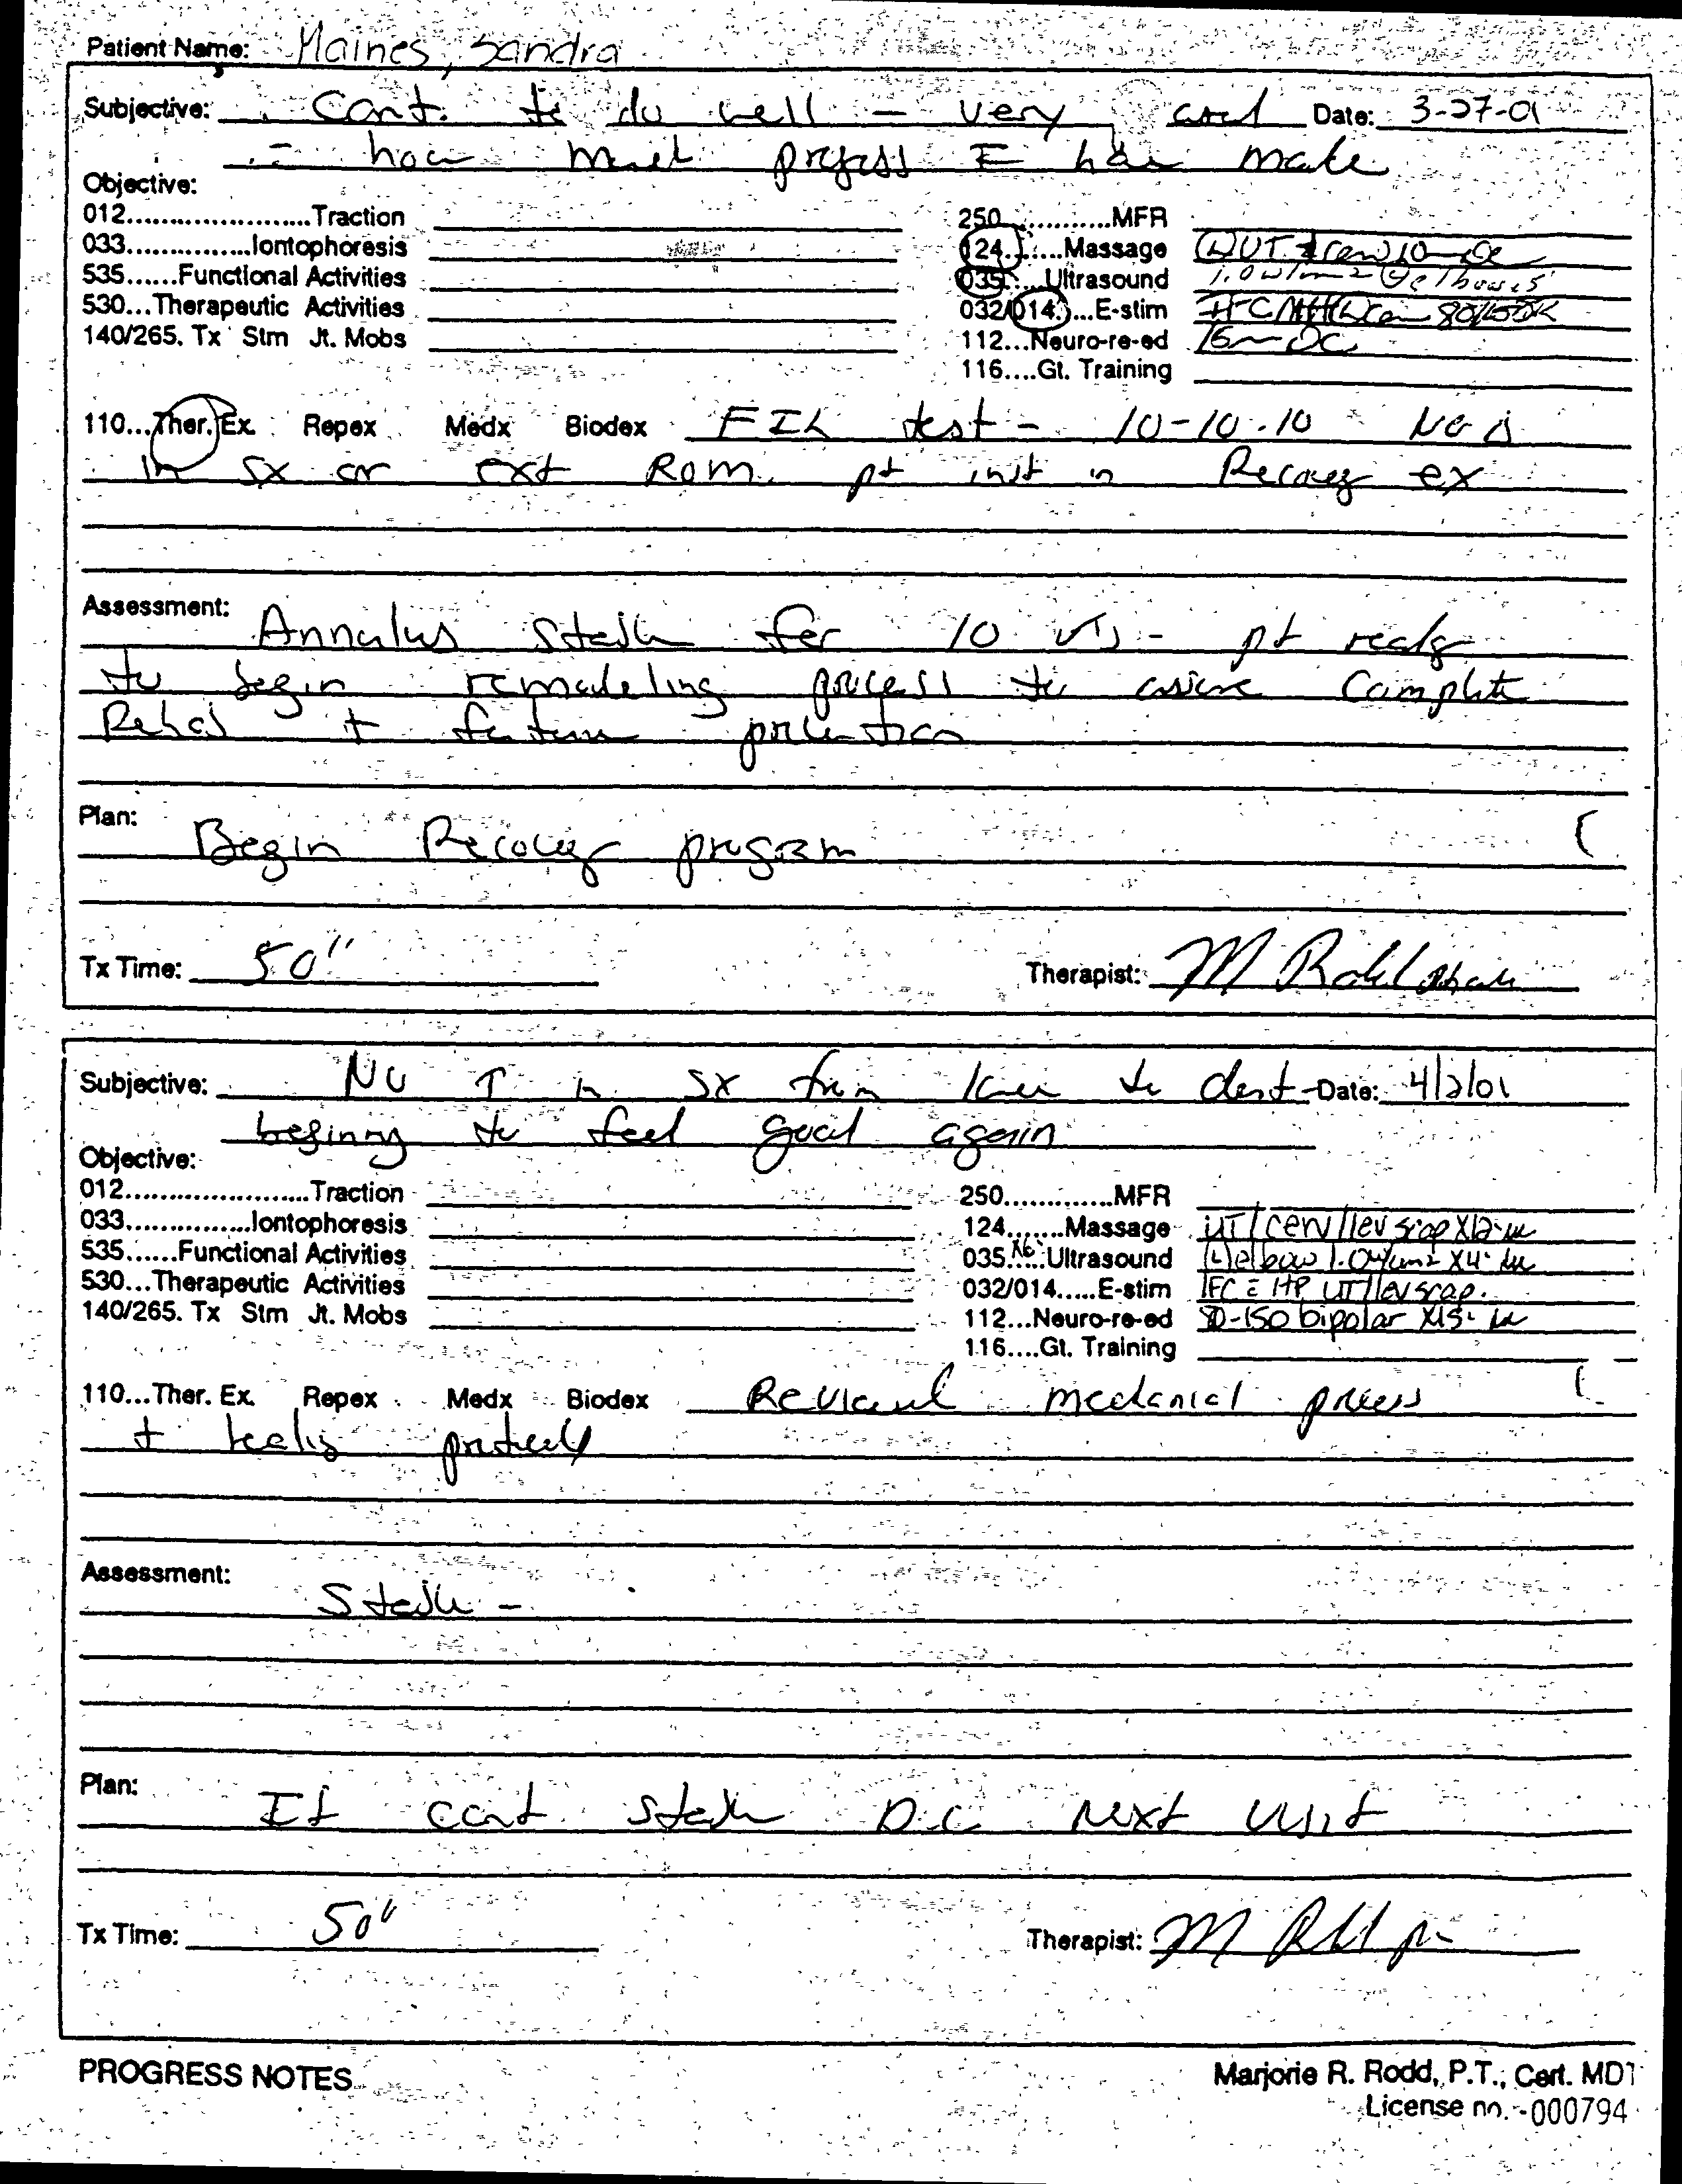 Patient Name: Maines, Sandra
Subjective: Cont. to do well - very good Date: 3-27-01
= how much progress I have made
Objective:
012......................Traction
033................Iontophoresis
535......Functional Activities
530...Therapeutic Activities
140/265. Tx Stm Jt. Mobs
250.............MFR
124.......Massage
035......Ultrasound 1.0 w/cm2 elbow x5'
032/014.....E-stim IFC
112...Neuro-re-ed 15
116....Gt. Training
110...Ther. Ex. Repex Medx Biodex FIL test - 10-10-10 No Δ
in Sx or ext ROM. pt inst in Recovery ex
Assessment: Annulus Stable for 10 - pt ready
to begin remodeling process to assure complete
Rehab + future protection
Plan: Begin Recovery program
Tx Time: 50"
Therapist: M Rodd
Subjective: No ↑ in Sx from to Date: 4/2/01
beginning to feel good again
Objective:
012......................Traction
033................Iontophoresis
535......Functional Activities
530...Therapeutic Activities
140/265. Tx Stm Jt. Mobs
250.............MFR
124.......Massage UT/cerv/lev scap X12
035......Ultrasound (L) elbow 1.0w/cm2 X4'
032/014.....E-stim IFC c HP UT/lev scap.
112...Neuro-re-ed 80-150 bipolar X15
116....Gt. Training
110...Ther. Ex. Repex Medx Biodex Reviewed mechanical process
+ healing
Assessment: Stable -
Plan: If cont stable D.C next visit
Tx Time: 50"
Therapist: M Rodd
PROGRESS NOTES
Marjorie R. Rodd, P.T., Cert. MDT
License no. -000794